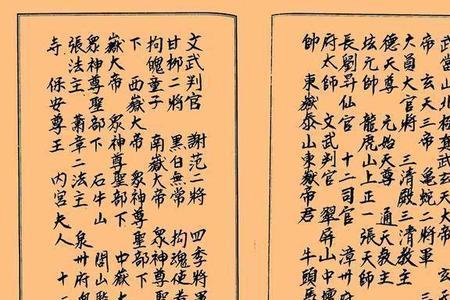 武當山北極真武玄天大帝 玄
帝 玄天三帝 龜蛇二將軍
大昌大官將 三清殿三清教主
德天尊 元始天尊 通天教主
坛元帥 龍虎山上正一張天師
長劉昇仙官 十二司官 漳州府
府太師 文武判官 翠屏山中
帥 東嶽泰山東嶽帝君 牛頭馬
文武判官 謝范二將 四季將軍
甘柳二將 黑白無常 拘魂使者
拘魄童子 南嶽大帝 眾神
下 西嶽大帝 眾神尊聖部下
嶽大帝 眾神尊聖部下 中嶽
眾神尊聖部下 石牛山 閭山
張法主 蕭章二法主 泉州府
寺 保安尊王 內宮夫人 十二